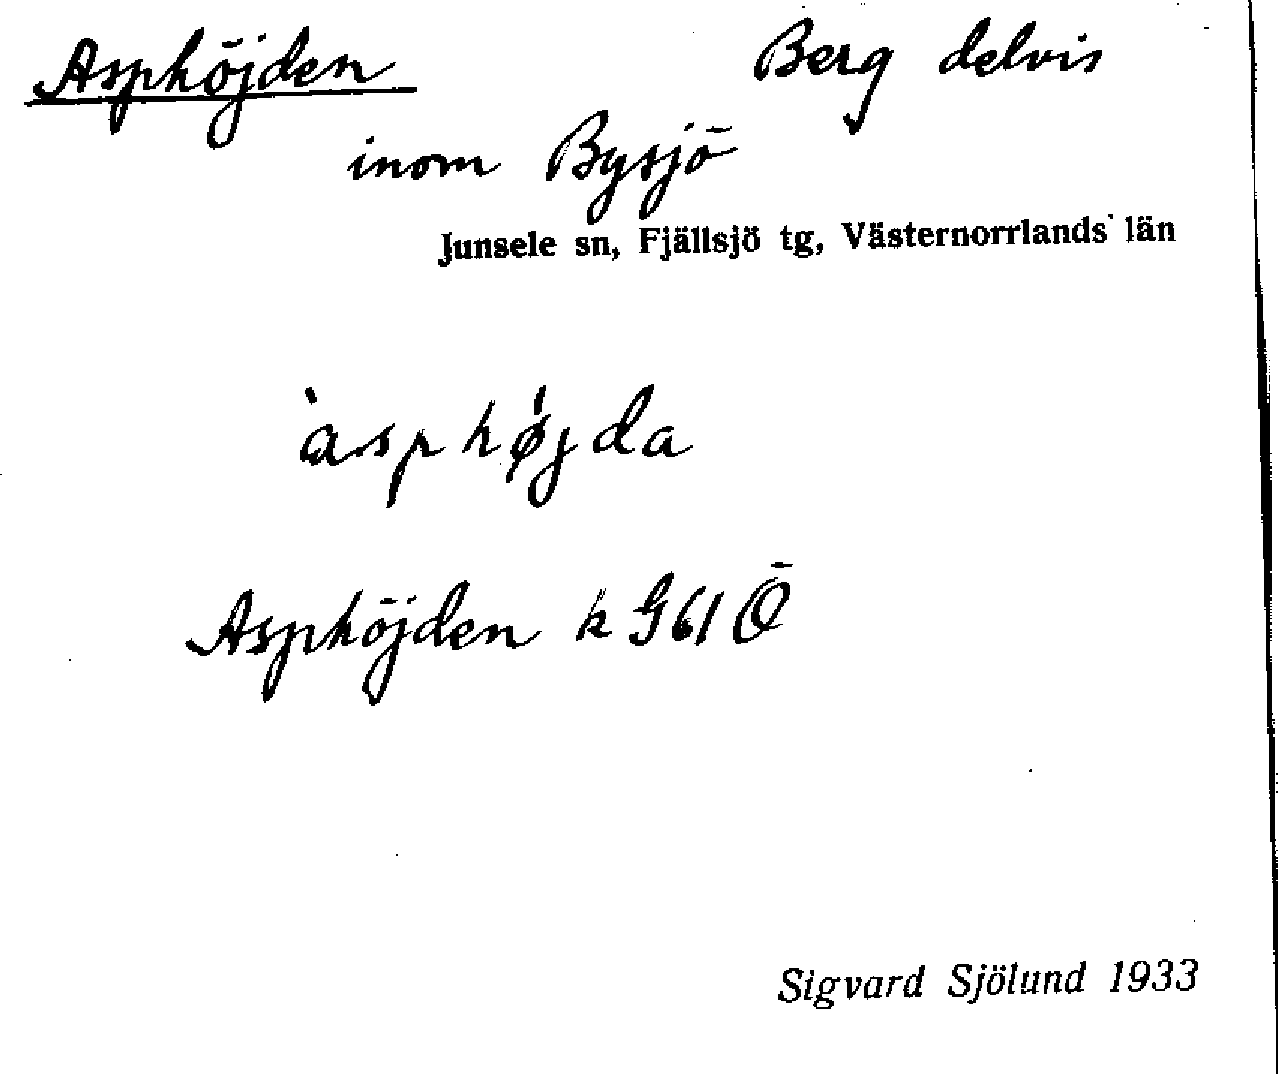 Asphöjden Berg delvis
inom Bysjö
Junsele sn, Fjällsjö tg, Västernorrlands län
`asphǿjda
Asphöjden k G61 Ö
Sigvard Sjölund 1933